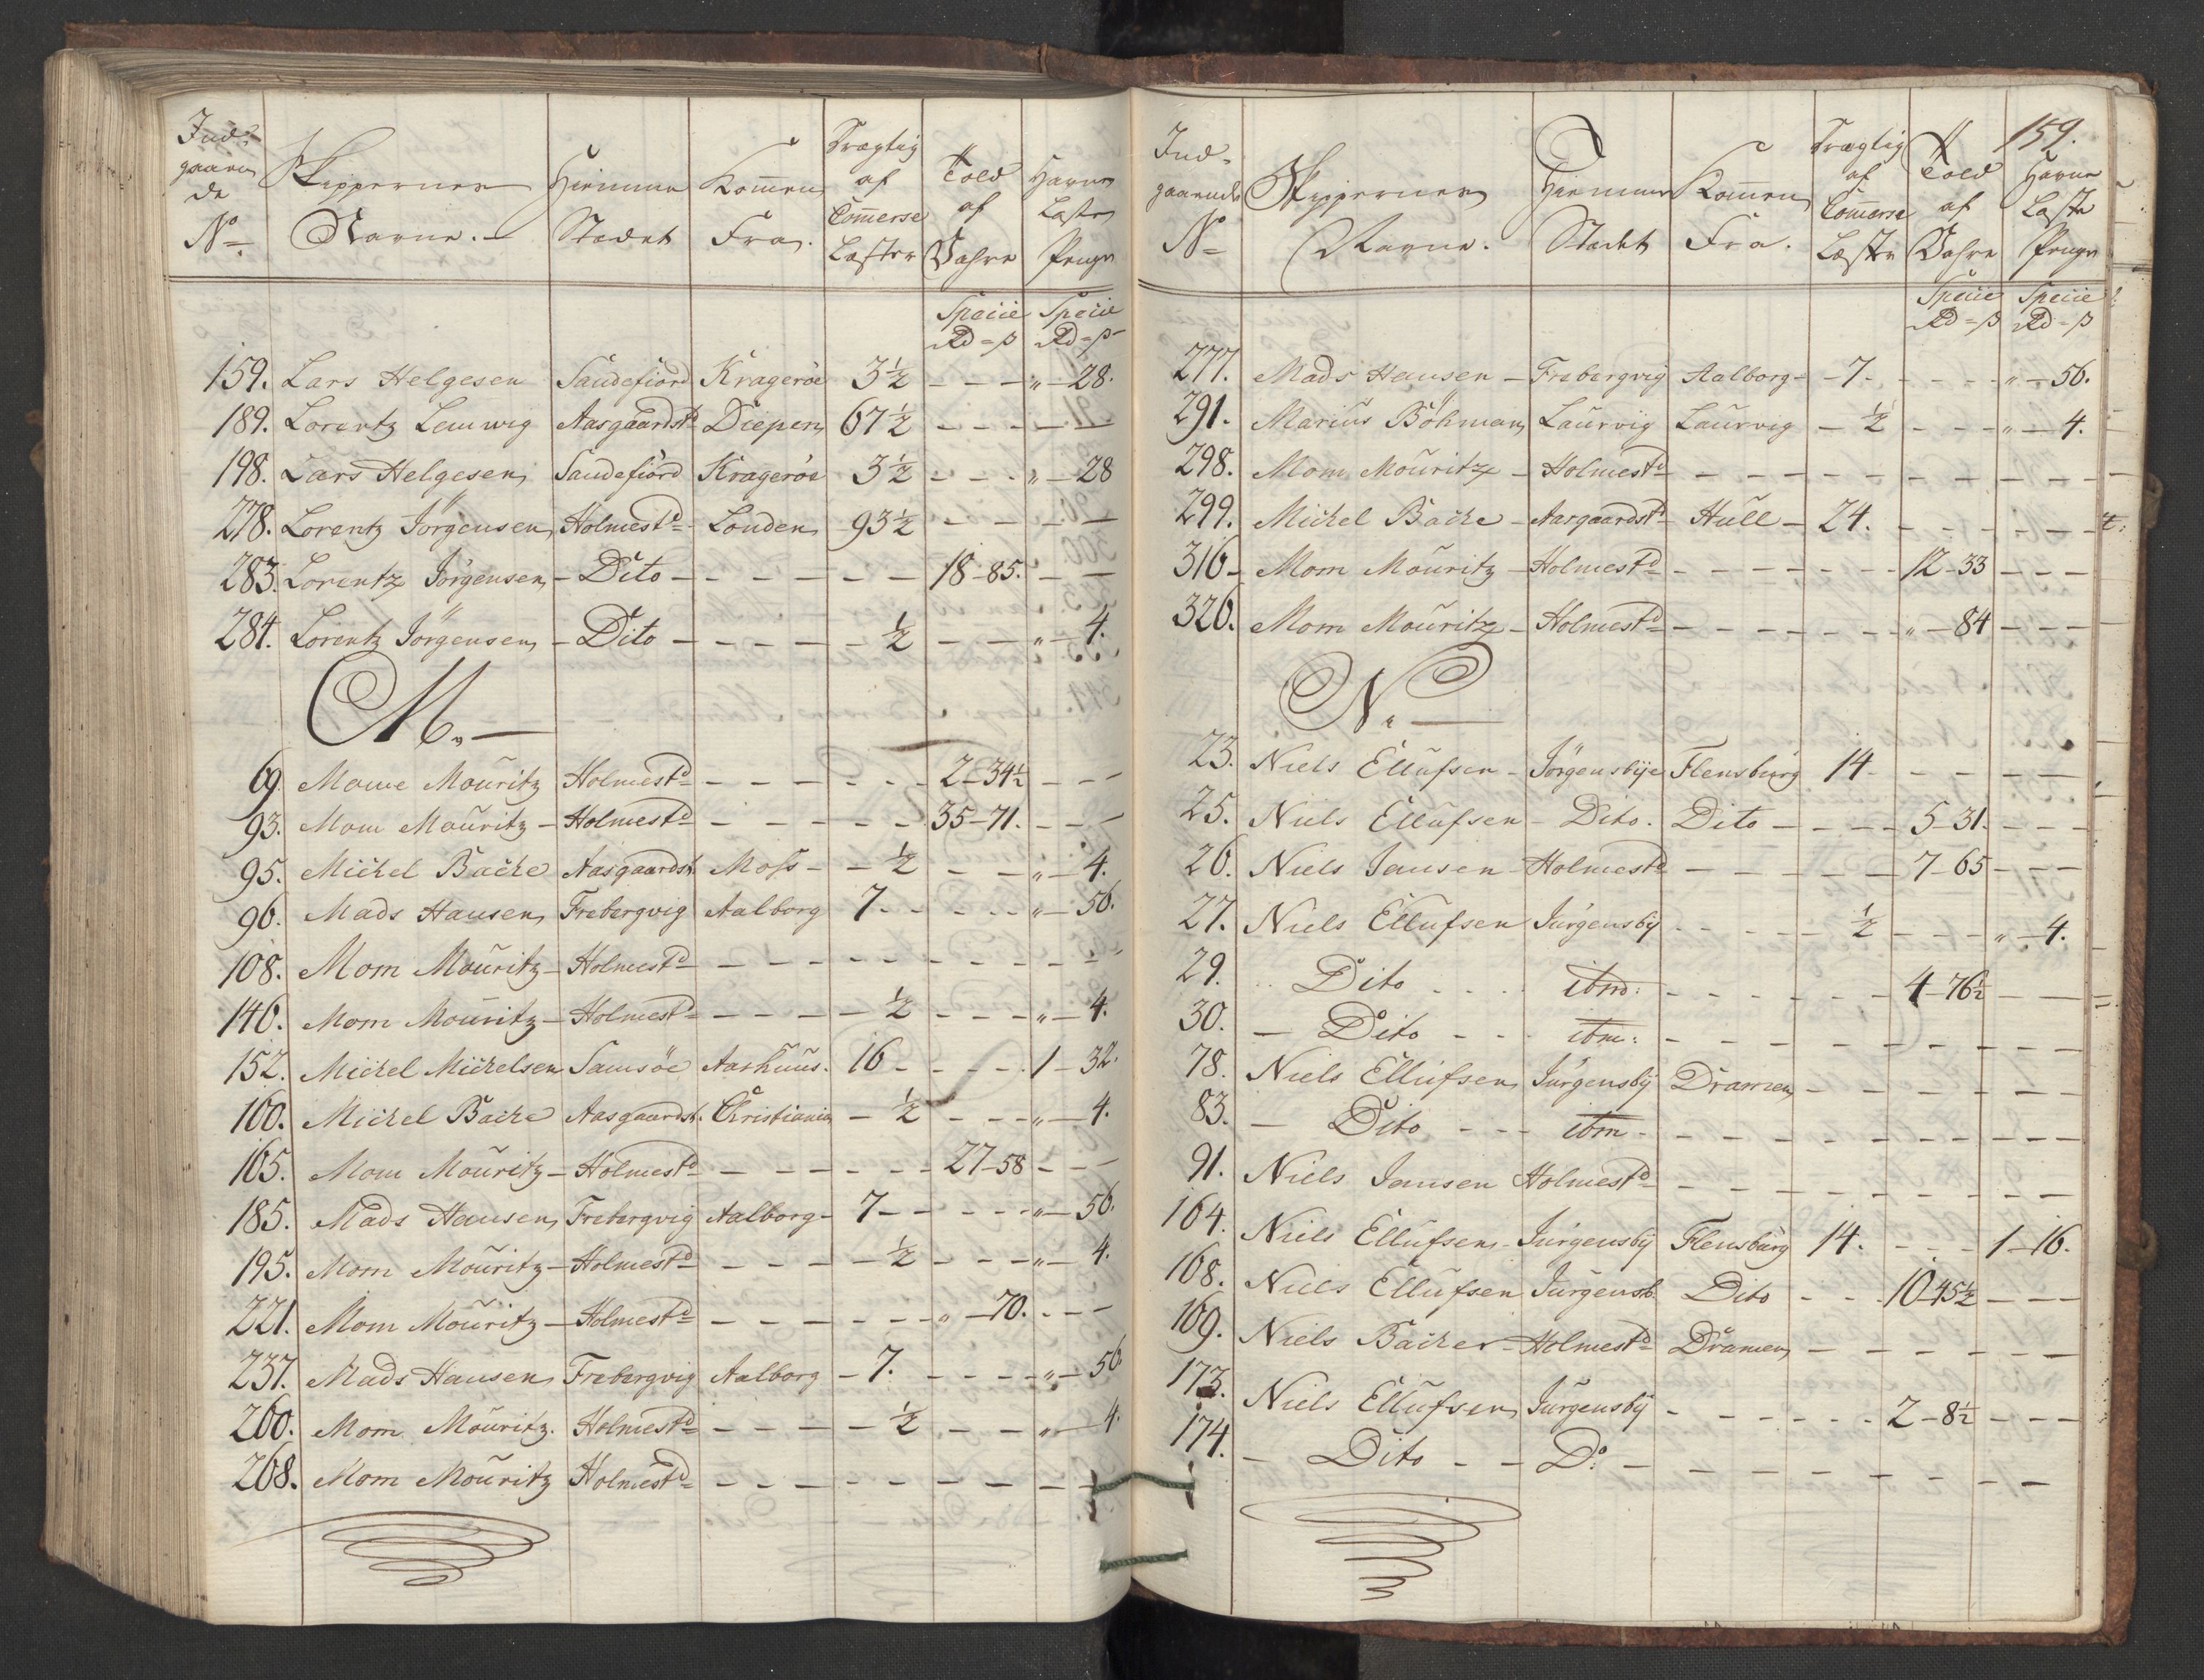 Ind=
gaaren
de
No
Skippernes
Navne.
Hiemme
Stædet
Kommen
Fra.
Drægtig
af
Commerse
Læster
Told
af
Vahre
Havne
Laste
Penge
Specie
Rd = ß
Specie
Rd = ß
159. Lars Helgesen Sandefiord Kragerøe 3½ - - - „ - 28.
189. Lorentz Lemwig Aasgaardst Diepen 67½ - - - - -
198. Lars Helgesen Sandefiord Kragerøe 3½ - - - „ - 28
278. Lorentz Jörgensen Holmestd Londen 93½ - - - - -
283. Lorentz Jörgensen - Dito - - - - - - 18-85. - -
284. Lorentz Jörgensen - Dito - - - - - ½ - - „ - 4.
M. -
69. Mouritz Holmestd - - - - - - 2-34½ - - -
93. Mom Mouritz - Holmestd - - - - - - 35-71. - - -
95. Michel Bache Aasgaardst. Moss - - ½ - - „ - 4.
96. Mads Hansen Frebergvig Aalborg 7 - - - - „ - 56.
108. Mom Mouritz - Holmestd - - - - - - - - - -
146. Mom Mouritz - Holmestd - - - - ½ - - - „ - 4.
152. Michel Michelsen Samsöe Aarhuus. 16 - - - - 1 - 32.
160. Michel Bache Aasgaardst. Christiania - ½ - - - „ - 4.
165. Mom Mouritz - Holmestd - - - - - - 27-58 - - -
185. Mads Hansen Frebergvig Aalborg - 7 - - - - - „ - 56.
195. Mom Mouritz - Holmestd - - - - ½ - - - „ - 4.
221. Mom Mouritz - Holmestd - - - - - - „ - 70. - - -
237. Mads Hansen Frebergvig Aalborg - 7. - - - - „ - 56
260. Mom Mouritz. Holmestd - - - - ½ - - „ - 4.
268. Mom Mouritz Holmestd - - - - - - - - -
159.
Ind=
gaaende
No
Skippernes
Navne.
Hiemme
Stædet
Kommen
Fra.
Drægtig
af
Commerse
Læste
Told
af
Vahre
Havne
Laste
Penge
Specie
Rd = ß
Specie
Rd = ß
277. Mads Hansen - Frebergvig Aalborg - - 7. - - - - „ - 56.
291. Marius Böhman Laurvig Laurvig - ½ - - - „ - 4.
298. Mom Mouritz - Holmestd - - - - - - - - - -
299. Michel Bache - Aasgaardst Hull - 24. - - - - - -
316 - Mom Mouritz - Holmestd - - - - - - - 12-33 - - -
326. Mom Mouritz - Holmestd - - - - - - - „ - 84 - - -
N. -
23. Niels Ellufsen - Jörgensbye Flensburg 14 - - - - - -
25. Niels Ellufsen - Dito. Dito - - - - 5-31. - - -
26. Niels Jansen - Holmestd - - - - - - 7-65 - - -
27. Niels Ellufsen Jürgensby - - - - - ½ - - - „ - 4.
29. Dito - - - ibm: - - - - - - 4-76½ - - -
30. - Dito - - - ibm: - - - - - - - - -
78. Niels Ellufsen Jürgensby Dramen - - - - - - -
83. - Dito - - - ibm - - - - - - - - - -
91. Niels Jansen Holmestd - - - - - - - - -
164. Niels Ellufsen - Jürgensby Flensburg 14. - - - 1-16.
168. Niels Ellufsen Jürgensb. Dito - - - 10-45½ - - -
169. Niels Bacher - Holmestd Dramen - - - - - - -
173. Niels Ellufsen Jürgensby - - - - - - 2-8½ - - -
174. - Dito - - Do - - - - - - - - -